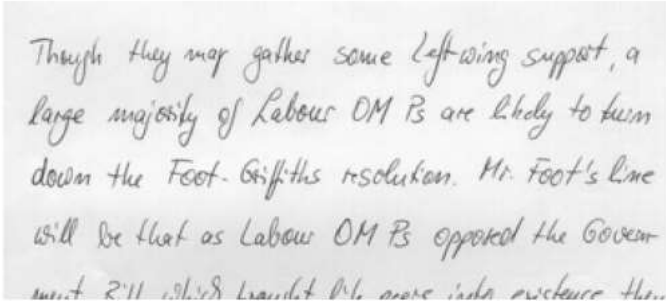 Though they may gather some Left-wing support, a
large majority of Labour OM Ps are likely to turn
down the Foot-Griffiths resolution. Mr. Foot's line
will be that as Labour OM Ps opposed the Govern-
ment Bill which brought life peers into existence they